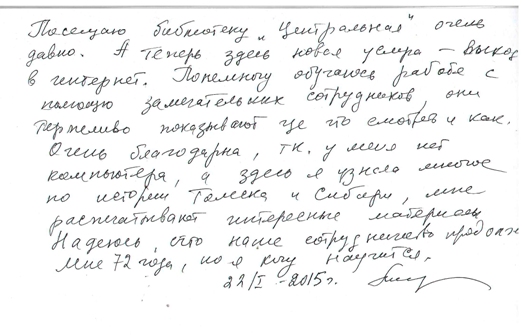 Посещаю библиотеку „Центральная" очень
давно. А теперь здесь новая услуга – выход
в интернет. Понемногу обучаюсь работе с
помощью замечательных сотрудников, они
терпеливо показывают где что смотреть и как.
Очень благодарна, т.к. у меня нет
компьютера, а здесь я узнала многое
по истории Томска и Сибири, мне
распечатывают интересные материалы
Надеюсь, что наше сотрудничество продолж
Мне 72 года, но я хочу научится.
22/I -2015г.